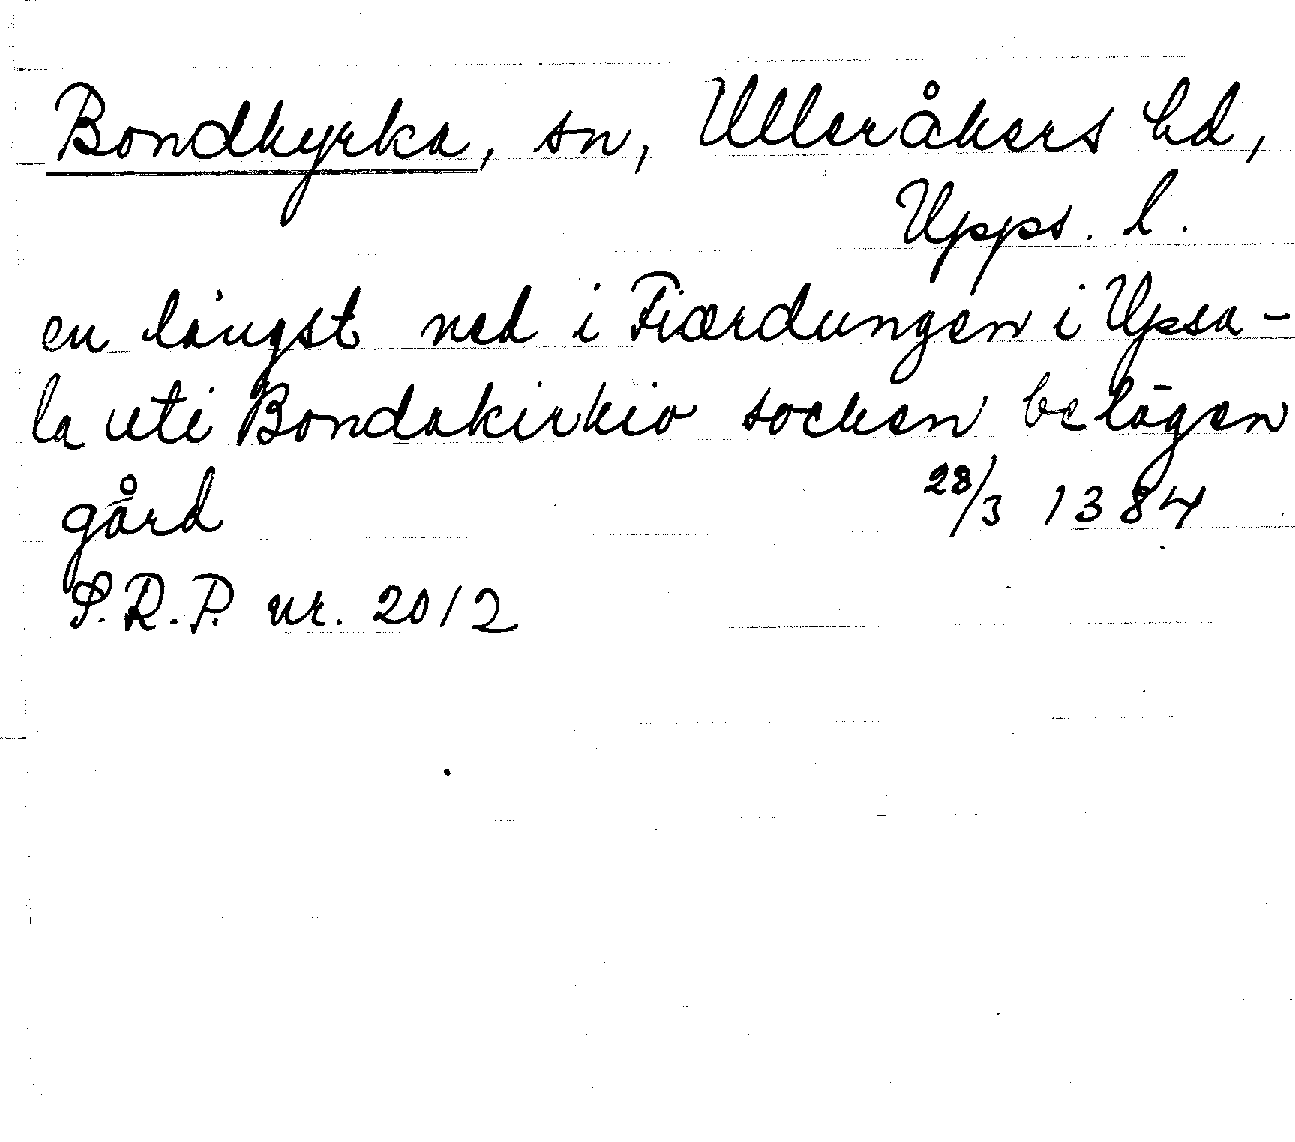 Bondkyrka, sn, Ulleråkers hd,
Upps. l.
en längst ned i Fiærdungen i Upsa-
la uti Bondakirkio socken belägen
gård 28/3 1384
S.R.P. nr. 2012